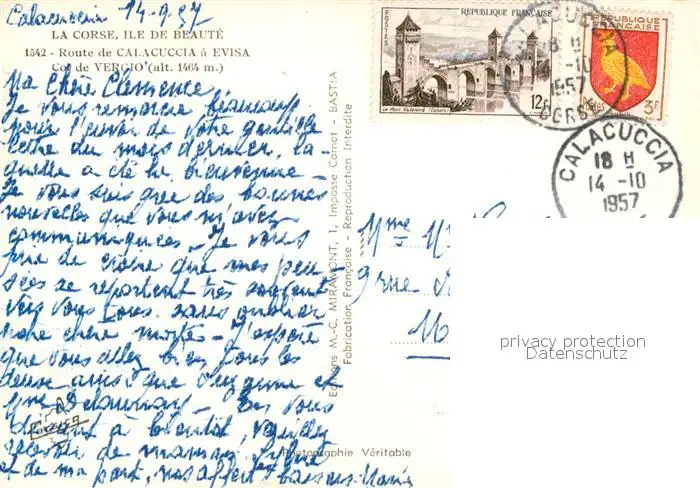 Calacuccia 14-9.57
LA CORSE, ILE DE BEAUTÉ
1542 - Route de CALACUCCIA à EVISA
Col de VERGIO (alt. 1464 m.)
Ma Chère Clemence,
Je vous remercie beaucoup
pour l'envoi de votre gentille
lettre du mois dernier, la-
quelle a été la bienvenue -
Je vous suis gré des bonnes
nouvelles que vous m'avez
communiquées - Je vous
prie de croire que mes pen
sées se reportent très souvent
vers vous tous. sans oublier
notre chère - J'espère
que vous allez bien tous les
deux ainsi que et
Mme - En vous
disant à bientôt, veuillez
recevoir de maman,
et de ma part, nos affect baisers. Marie
Editions M.-C. MIRAMONT, 1, Impasse Cornot - BASTIA
Fabrication Française - Reproduction Interdite
Photographie Véritable
POSTES
RÉPUBLIQUE FRANÇAISE
Le Pont Valentré (Cahors)
12F
RÉPUBLIQUE
FRANÇAISE
3F
18 H
14-10
1957
CORSE
CALACUCCIA
18 H
14-10
1957
Mme
9 rue
privacy protection
Datenschutz